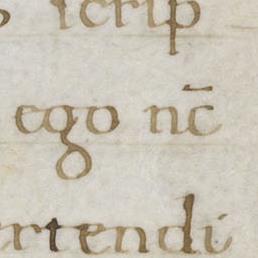 scrip
ego nc̄
ertendi